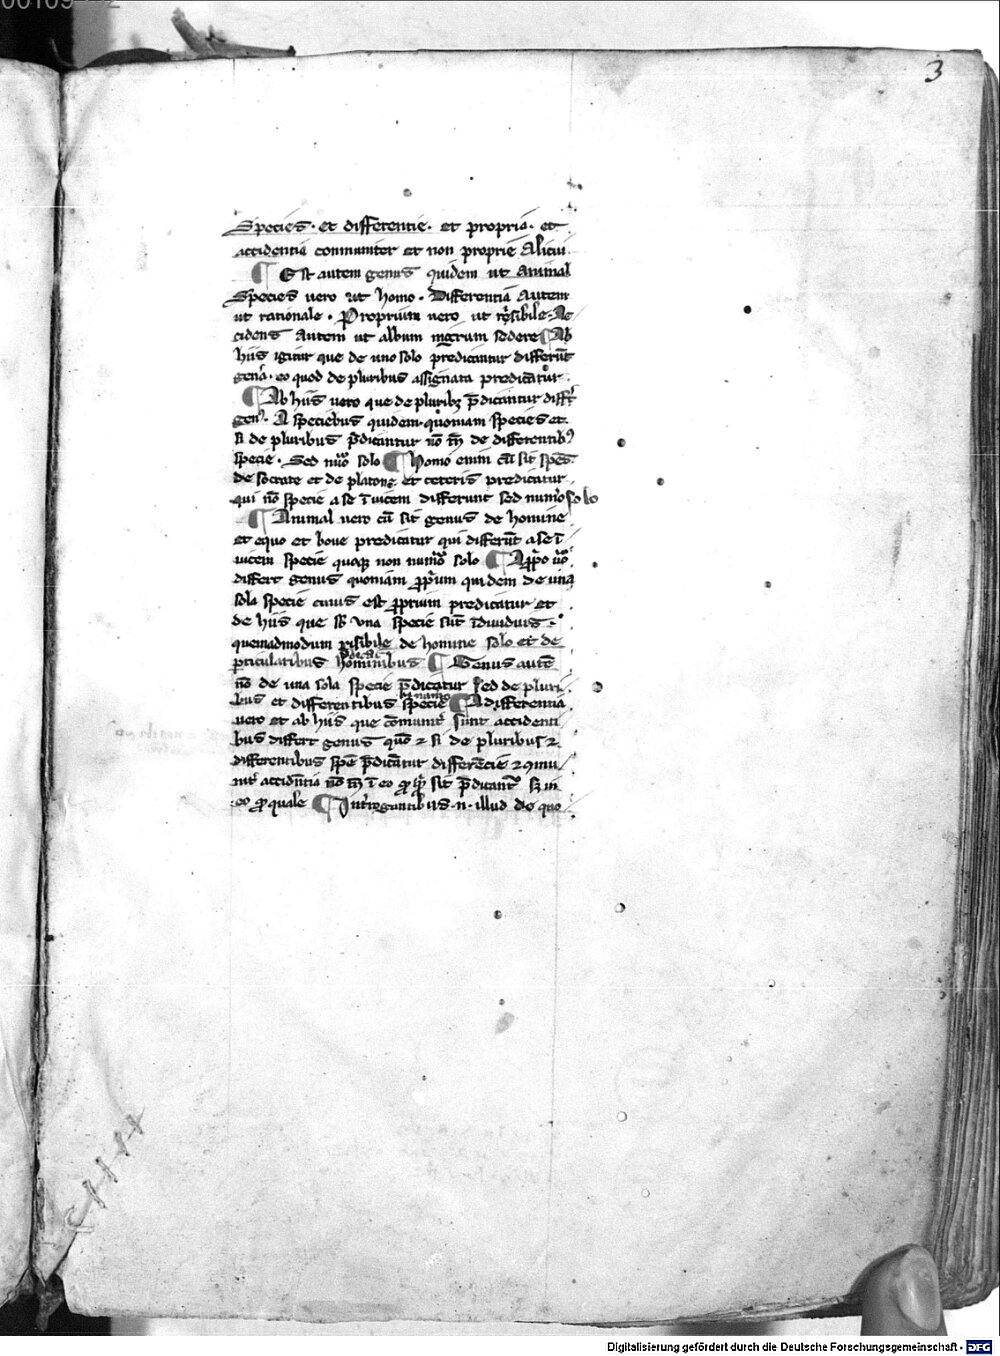 3
Species · et differentie · et propria · et
accidentia communiter et non proprie alicui
¶ Est autem genus quidem ut animal
Species vero ut homo · Differentia autem
ut rationale · Proprium vero ut risibile · Ac
cidens autem ut album nigrum sedere ¶ Ab
hiis igitur que de uno solo predicantur differūt
gen̄a · eo quod de pluribus assignata predicātur ·
¶ Ab hiis vero que de pluribꝫ p̄dicantur diffr̄t
A speciebus quidem quoniam species et
si de pluribus p̄dicantur nō tm̄ de differentibꝰ
specie · Sed nūo solo ¶ Homo enim cū sit spēs
de socrate et de platone et ceteris predicatur
qui nō specie a se īuicem differunt sed numo solo
¶ Animal vero cū sit genus de homine
et equo et boue predicatur qui differūt a se ī
uicem specie quoqꝫ non numo solo ¶ A p̄prio ūo
differt genus quoniam p̄prium quidem de una
sola specie cuius est p̄prium predicatur et
de hiis que sb̄ una specie sūt īdiuiduis ·
quemadmodum risibile de homine solo et de
perticularibus hominibus ¶ Genus autē
nō de una sola specie p̄dicatur sed de pluri
bus et differentibus specie ¶ A differentia
vero et ab hiis que cōmunit̄ sunt accidenti
bus differt genus quō ⁊ si de pluribus ⁊
differentibus spē p̄dicātur differēcie ⁊ ꝯmu
nit̄ accidētia nō tm̄ ī eo ꝙ sit p̄dicant̄ sꝫ in
eo ꝙ quale ¶ Int̄rogantibus · n · illud de quo
Digitalisierung gefördert durch die Deutsche Forschungsgemeinschaft - DFG